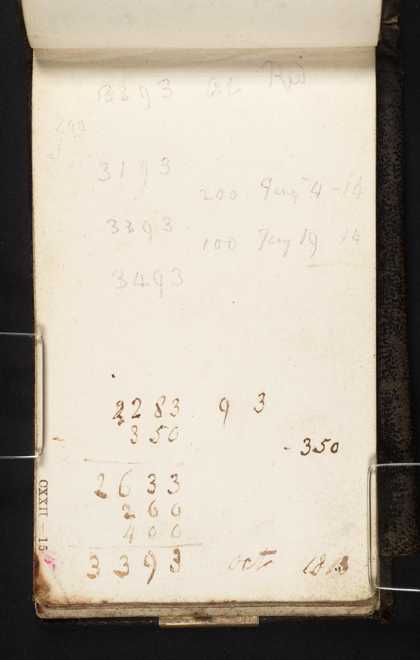 3393
200
3193
200 Jany 4 - 14
3393
100 Jany 19 14
3493
2283 9 3
350
- 350
2633
260
400
3393 Oct 1813
CXXII — 15